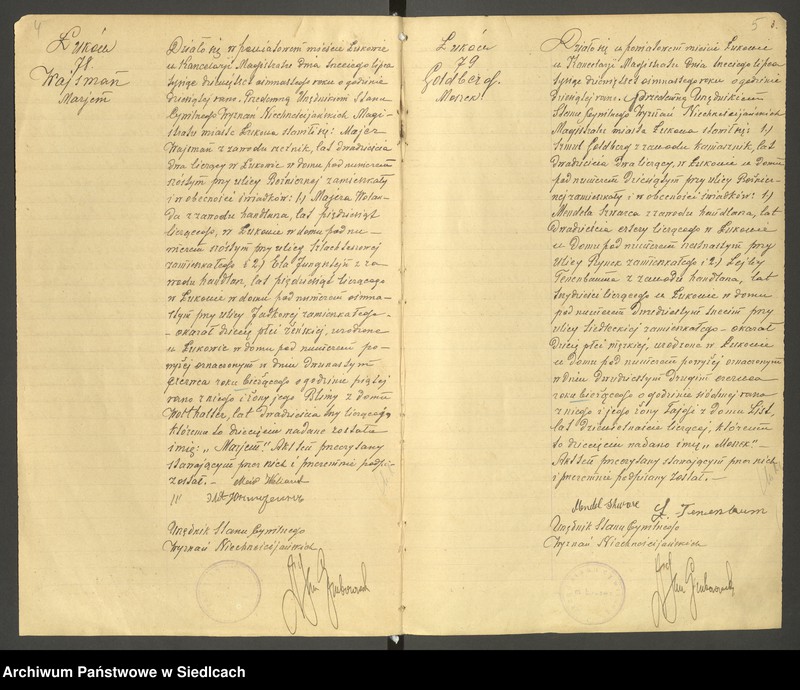 4
Łuków
78.
Wajsman
Marjem
Działo się w powiatowem mieście Łukowie
w Kancelarji Magistratu dnia trzeciego lipca
tysiąc dziewięćset ośmnastego roku o godzinie
dziesiątej rano. Przedemną Urzędnikiem Stanu
Cywilnego Wyznań Niechrześcijańskich Magi-
stratu miasta Łukowa stawił się: Majer
Wajsman z zawodu rzeźnik, lat dwadzieścia
dwa liczący w Łukowie w domu pod numerem
szóstym przy ulicy Bożniczej zamieszkały
i w obecności świadków: 1) Majera Wolan-
da z zawodu handlarza, lat pięćdziesiąt
liczącego, w Łukowie w domu pod nu-
merem szóstym przy ulicy
zamieszkałego i 2) Ela z za-
wodu handlarz, lat pięćdziesiąt liczącego
w Łukowie w domu pod numerem ośmna-
stym przy ulicy zamieszkałego -
- okazał dziecię płci żeńskiej, urodzone
w Łukowie w domu pod numerem po-
wyżej oznaczonym w dniu dwunastym
czerwca roku bieżącego o godzinie piątej
rano z niego i żony jego Blimy z domu
lat dwadzieścia trzy liczącej,
któremu to dziecięciu nadano zostało
imię: „Marjem". Akt ten przeczytany
stawającym przez nich i przezemnie podpi-
sany został. -
Urzędnik Stanu Cywilnego
Wyznań Niechrześcijańskich
5
Łuków
79
Goldberg.
Moszek.
Działo się w powiatowem mieście Łukowie
w Kancelarji Magistratu dnia trzeciego lipca
tysiąc dziewięćset ośmnastego roku o godzinie
dziesiątej rano. Przedemną Urzędnikiem
Stanu Cywilnego Wyznań Niechrześcijańskich
Magistratu miasta Łukowa stawił się:
Szmul Goldberg z zawodu kamasznik, lat
dwadzieścia dwa liczący, w Łukowie w domu
pod numerem dziesiątym przy ulicy Bożni-
czej zamieszkały i w obecności świadków: 1)
Mendela Szwarca z zawodu handlarza, lat
dwadzieścia cztery liczącego w Łukowie
w domu pod numerem przy
ulicy Rynek zamieszkałego i 2) Lejby
Tenenbauma z zawodu handlarza, lat
trzydzieści liczącego w Łukowie w domu
pod numerem dwudziestym trzecim przy
ulicy Siedleckiej zamieszkałego - okazał
dziecię płci męzkiej, urodzone w Łukowie
w domu pod numerem powyżej oznaczonym
w dniu dwudziestym drugim czerwca
roku bieżącego o godzinie siódmej rano
z niego i jego żony Fajgi z domu List,
lat dziewiętnaście liczącej, któremu
to dziecięciu nadano imię „Moszek" -
Akt ten przeczytany stawającym przez nich
i przezemnie podpisany został. -
Mendel Szwarc L. Tenenbaum
Urzędnik Stanu Cywilnego
Wyznań Niechrześcijańskich
Archiwum Państwowe w Siedlcach